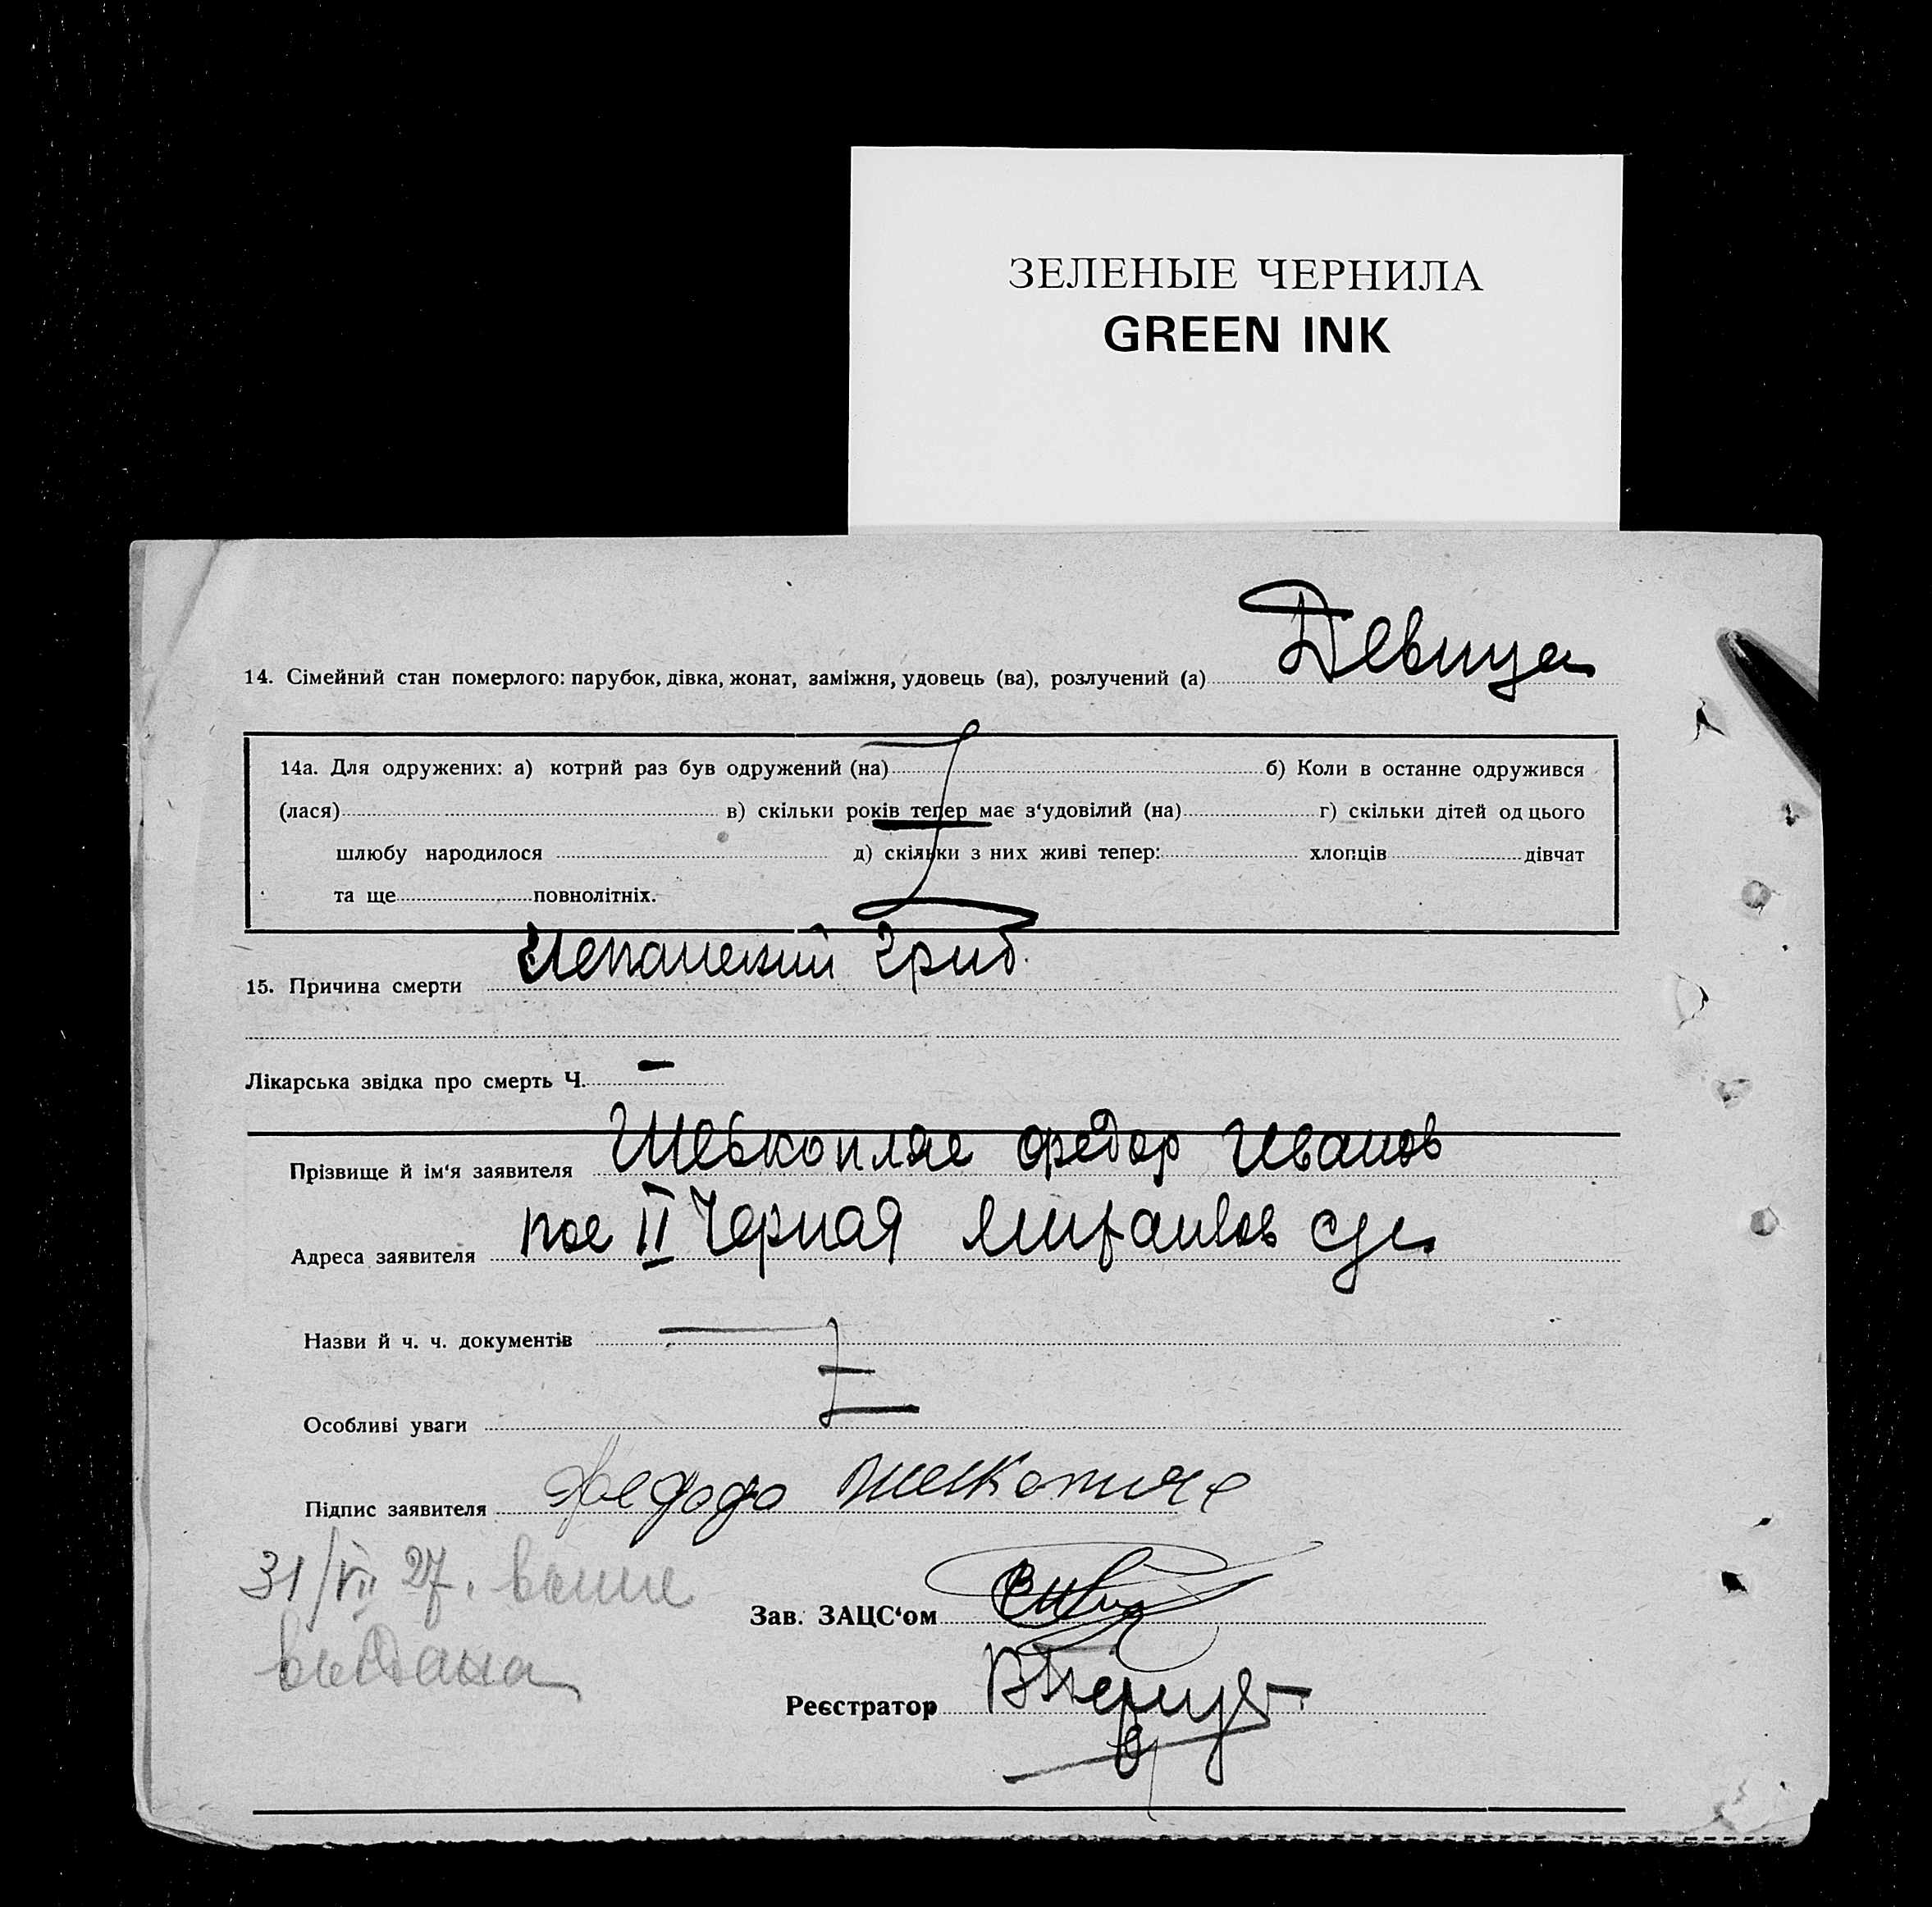 ЗЕЛЕНЫЕ ЧЕРНИЛА
GREEN INK
14. Сімейний стан померлого: парубок, дівка, жонат, заміжня, удовець (ва), розлучений (а) Девица
14а. Для одружених: а) котрий раз був одружений (на) б) Коли в останне одружився
(лася) в) скільки років тепер має з'удовілий (на) г) скільки дітей од цього
шлюбу народилося д) скільки з них живі тепер: хлопців дівчат
та ще повнолітніх.
15. Причина смерти Испанский грип.
Лікарська звідка про смерть Ч. —
Прізвище й ім'я заявителя Шевкопляс Федор Иванов
Адреса заявителя пос II Черная
Назви й ч. ч. документів
Особливі уваги
Підпис заявителя Федор
31/VII 27.
Зав. ЗАЦС'ом
выдана
Реєстратор